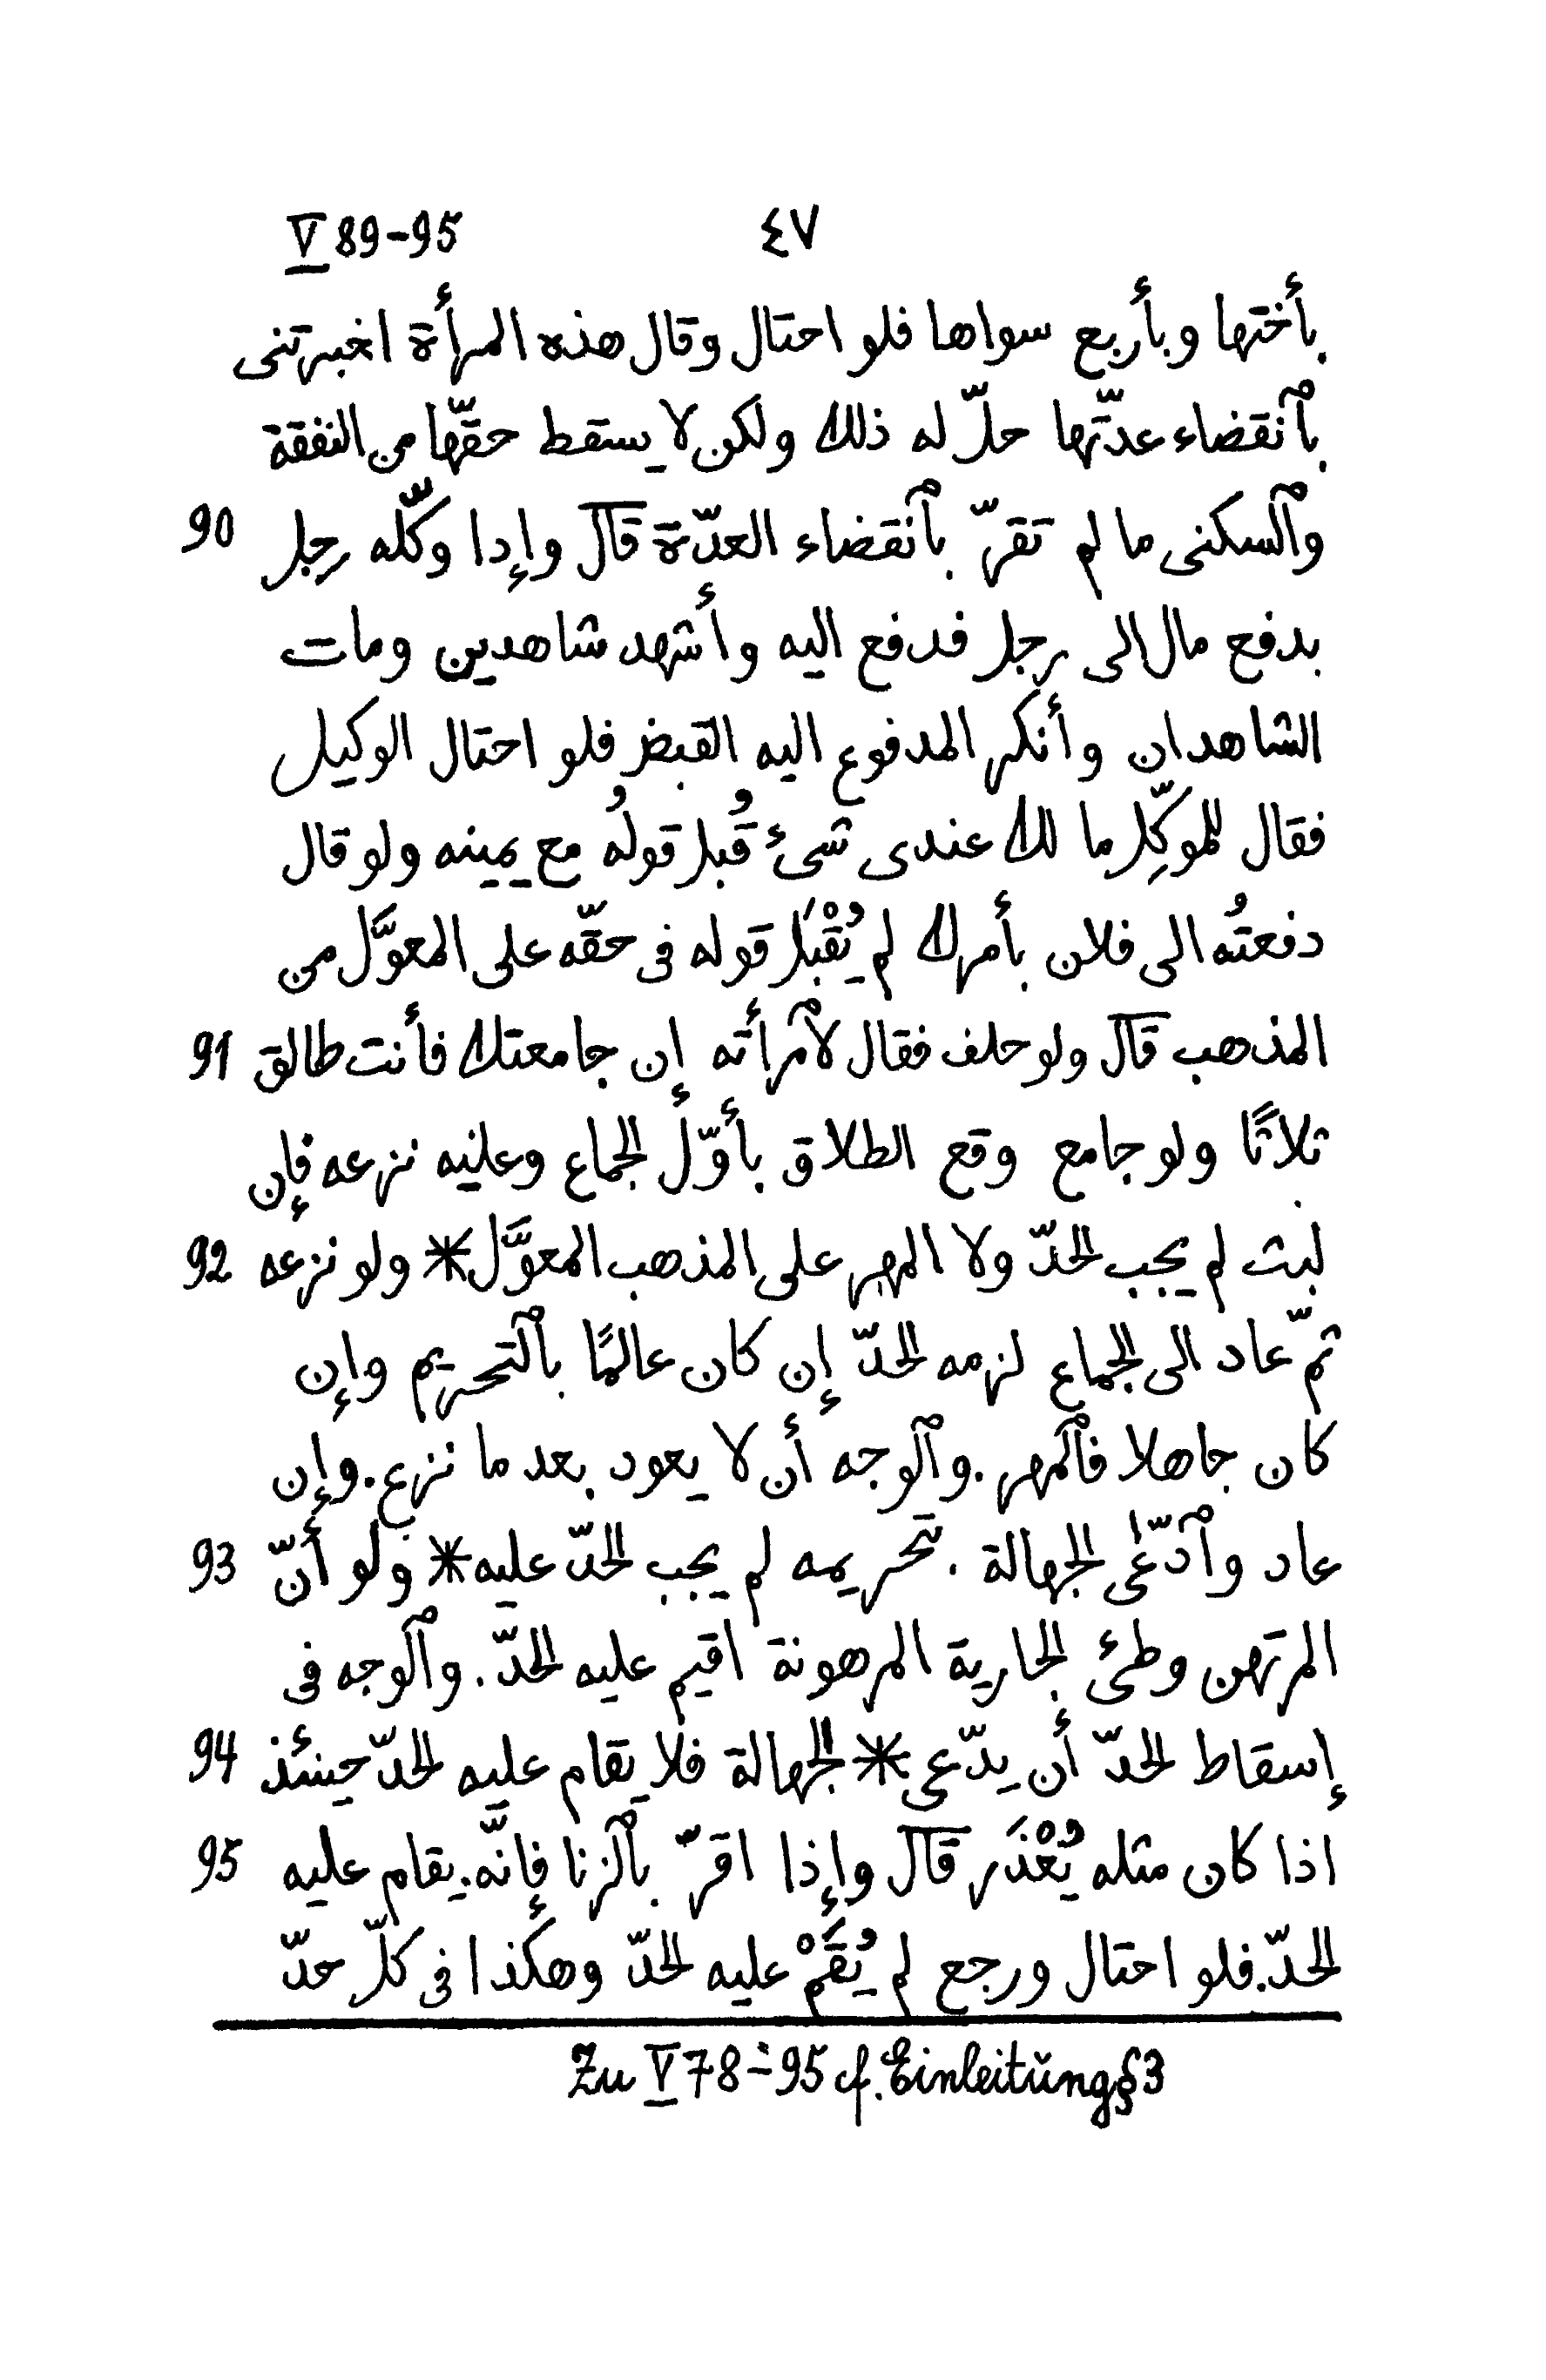 V 89-95 ٤٧
بأختها وبأربع سواها فلو احتال وقال هذه المرأة اخبرتنى
بٱنقضاء عدّتها حلّ له ذلك ولكن لا يسقط حقّها من النفقة
وٱلسكنى ما لم تقرّ بٱنقضاء العدّة قال وإدا وكّله رجل 90
بدفع مال الى رجل فدفع اليه وأشهد شاهدين ومات
الشاهدان وأنكر المدفوع اليه القبض فلو احتال الوكيل
فقال للموكِّل ما لك عندى شىء قُبل قولُه مع يمينه ولو قال
دفعتُه الى فلان بأمرك لم يُقْبَل قوله فى حقّه على المعوَّل من
المذهب قال ولو حلف فقال لٱمرأته إن جامعتك فأنت طالق 91
ثلاثًا ولو جامع وقع الطلاق بأوّل الجماع وعليه نزعه فإن
لبث لم يجب الحدّ ولا المهر على المذهب المعوَّل * ولو نزعه 92
ثمّ عاد الى الجماع لزمه الحدّ إن كان عالمًا بٱلتحريم وإن
كان جاهلا فٱلمهر. وٱلوجه أن لا يعود بعد ما نزع. وإن
عاد وٱدّعى الجهالة بتحريمه لم يجب الحدّ عليه * ولو أنّ 93
المرتهن وطئ الجارية المرهونة اقيم عليه الحدّ. وٱلوجه فى
إسقاط الحدّ أن يدّعى * الجهالة فلا يقام عليه الحدّ حينئذ 94
اذا كان مثله يُعْذَر قال وإذا اقرّ بٱلزنا فإنّه يقام عليه 95
الحدّ. فلو احتال ورجع لم يُقَمْ عليه الحدّ وهكذا فى كلّ حدّ
Zu V 78-95 cf. Einleitŭng § 3